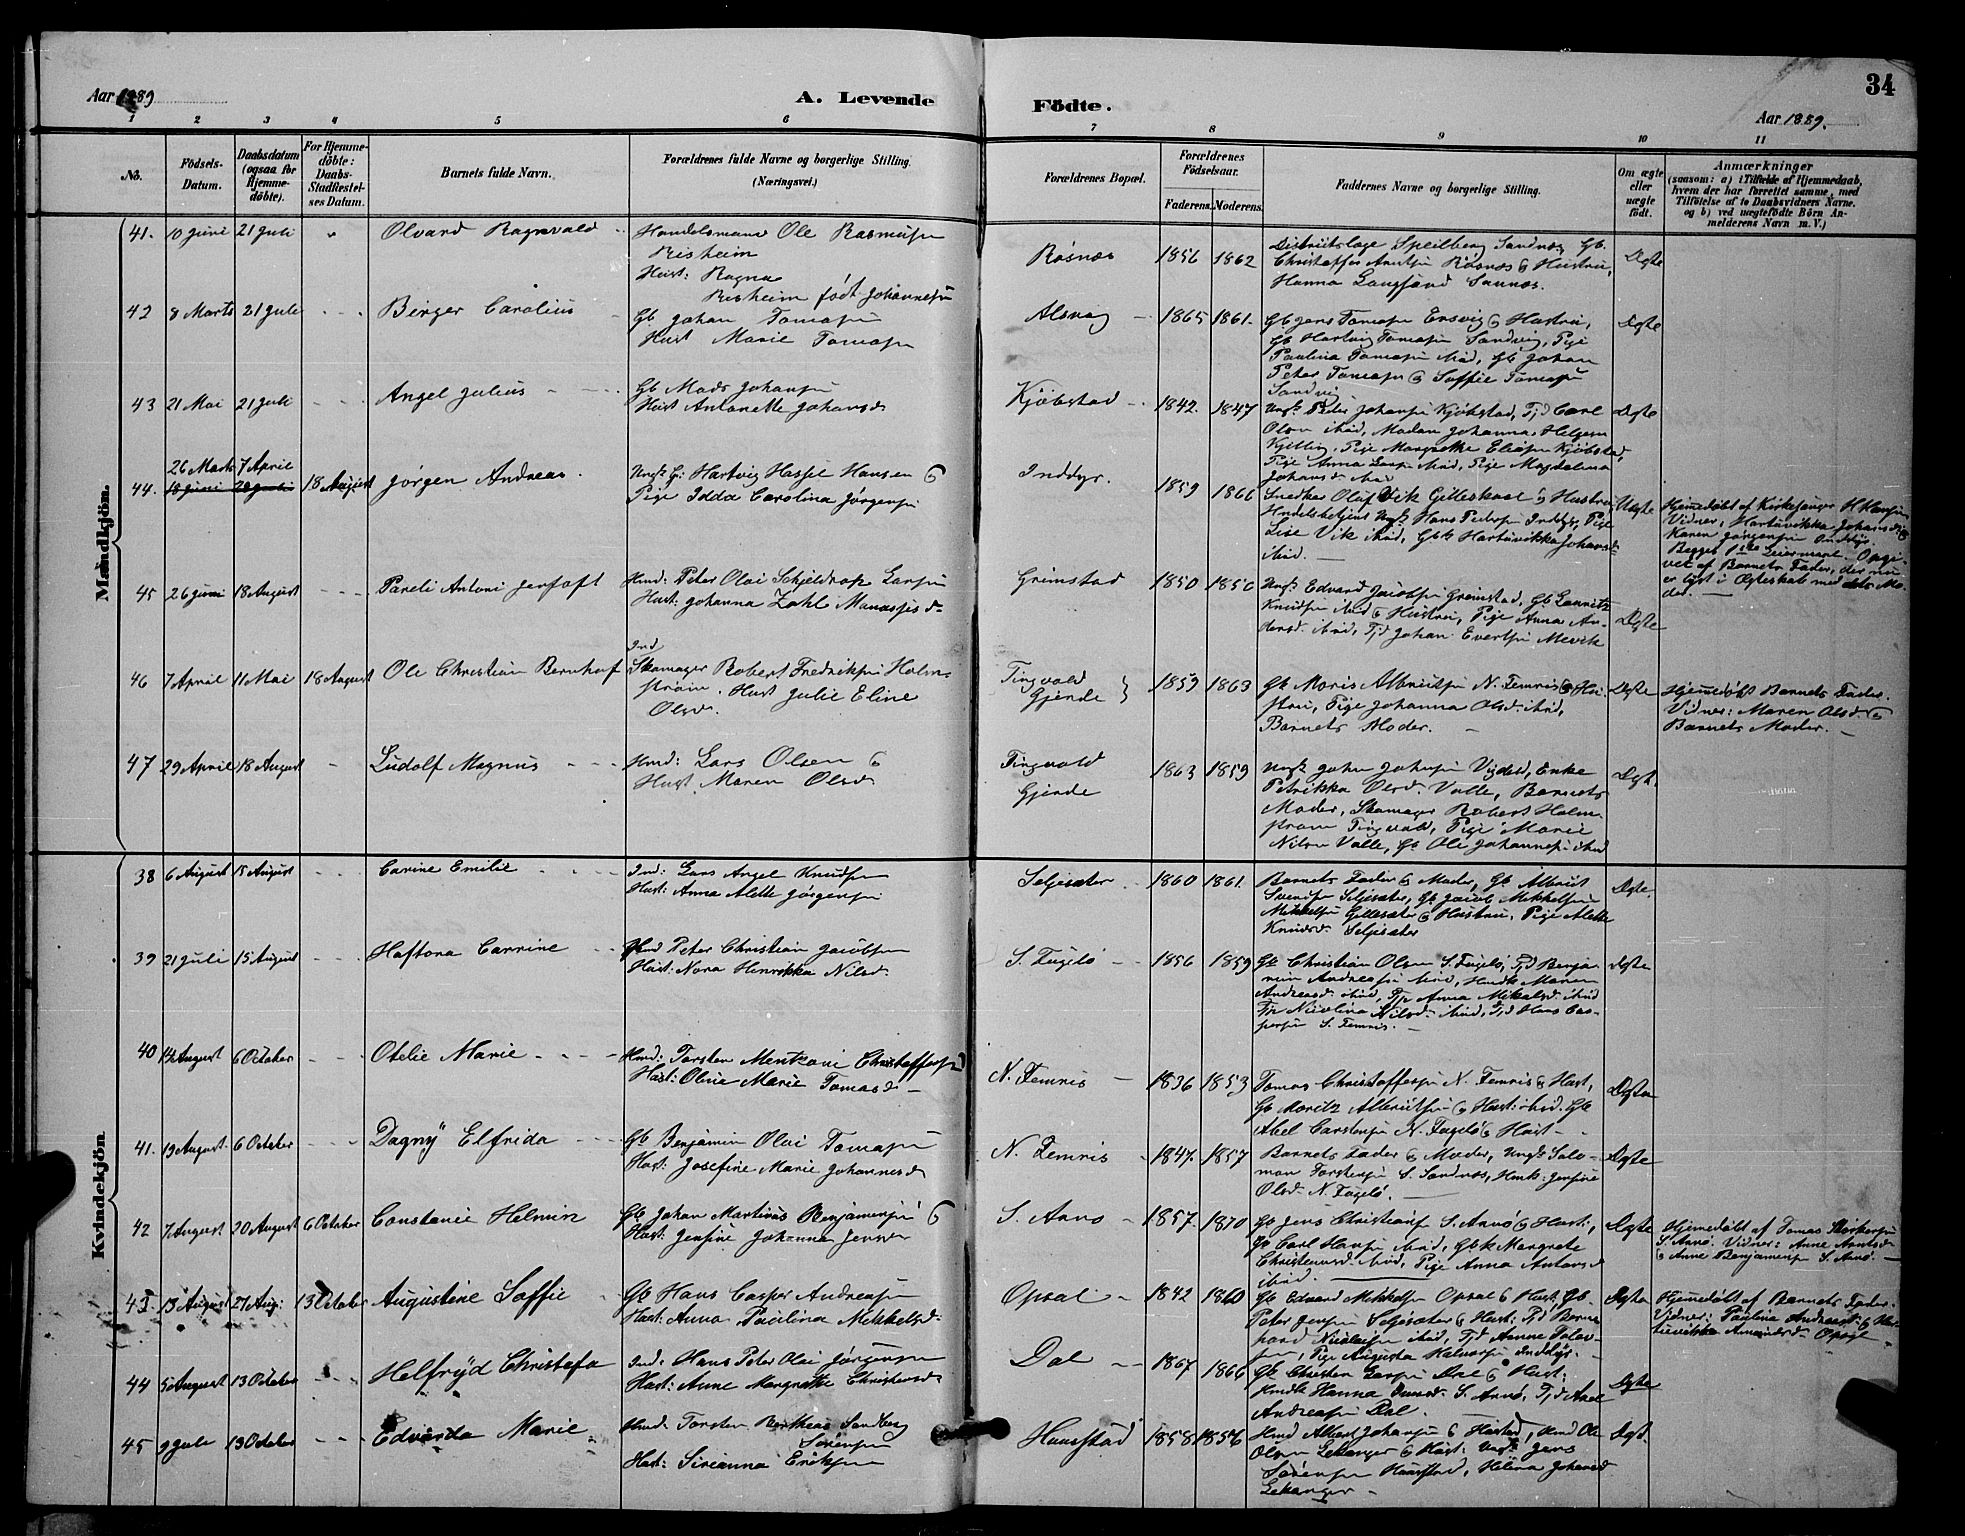 Aar 1889
A. Levende
Födte.
34
Aar 1889.
1 2 3 4 5 6 7 8 9 10 11
No.
Födsels-
Datum.
Daabsdatum
(ogsaa for
Hjemme-
döbte).
For Hjemme-
döbte:
Daabs-
Stadfæstel-
ses Datum.
Barnets fulde Navn.
Forældrenes fulde Navne og borgerlige Stilling.
(Næringsvei.)
Forældrenes Bopæl.
Forældrenes
Födselsaar.
Faderens. Moderens.
Faddernes Navne og borgerlige Stilling.
Om ægte
eller
uægte
födt.
Anmærkninger
(saasom: a) i Tilfælde af Hjemmedaab,
hvem der har forrettet samme, med
Tilföielse af to Daabsvidners Navne.
og b) ved uægtefödte Börn An-
melderens Navn m. V.)
Mandkjön.
41. 10 Juni 21 Juli
Olvard Ragnvald
Handelsmand Ole Rasmusen
Risheim
Hust: Ragna
Risheim født Johannesen
Røsnæs
1856 1862
Christoffer Røsnæs & Hustru,
Hanna
Ægte
42 8 Marts 21 Juli
Birger Carolius
Gb Johan Tomasen
Hust Marie Tomasen
Alsvog
1865 1861.
Gb Jens Tomasen & Hustru,
Gb Hartvig Tomasen Sandvig, Pige
Paulina Tomasen ibid, Gb Johan
Peter Tomasen & Soffie Tomasen
Sandvig
Ægte
43 21 Mai 21 Juli
Angel Julius
Gb Mads Johansen
Hust Antonette Johansd
Kjøbstad
1842. 1847
Ungk Peder Johansen Kjøbstad, Tj Carl
Olsen ibid, Madam Johanna Helgesen
Pige Margrethe Eliasen Kjøbstad,
Pige Anna Larsen ibid, Pige Magdalena
Johansd ibid
Ægte
44. 26 Marts 7 April
18 Juni 18 August
Jørgen Andreas
Ungk G: Hartvig Hassel Hansen &
Pige Idda Carolina Jørgensen
Inddyr.
1859 1866
Snedker Oluf Vik Gilleskaal & Hustru,
Ungk Hans Pedersen Inddyr, Pige
Lise Vik ibid, Hartvikka Johansd
ibid.
Uægte
Hjemmedøbt af Kirkesanger H Hansen
Vidner: Hartvikka Johansd &
Karen Jørgensen Inddyr.
Begges 1ste Leiermaal. Opgi-
vet af Barnets Fader, der nu
er lyst i Ægteskab med dets Mo-
der.
45 26 Juni 18 August
Pareli Antoni
Hmd: Peter Olai Schjeldrop Larsen
Hust: Johanna Zahl Manassesd
Grimstad
1850 1856
Ungk Edvard Jacobsen Grimstad, Gb Lauritz
Knudsen ibid & Hustru, Pige Anna An-
dersd ibid, Tjd Johan Evertsen Mevik
Ægte
46 7 April 11 Mai 18 August
Ole Christian Bernhof
Ind
Skomager Robert Fredriksen Holm-
strøm. Hust Julie Eline
Olsd.
Tingvold
Gjerde
1859 1863
Gb Moris Albrigtsen N. Femris & Hu-
stru, Pige Johanna Olsd. ibid,
Barnets Moder.
Ægte
Hjemmedøbt Barnets Fader.
Vidner: Maren Olsd &
Barnets Moder.
47 29 April 18 August
Ludolf Magnus
Hmd: Lars Olsen &
Hust. Maren Olsd
Tingvold
Gjerde
1863 1859
Ungk Johan Johansen Enke
Petrikka Olsd. Valle, Barnets
Moder, Skomager Robert Holm-
strøm Tingvold, Pige Marie
Nilsen Valle, Gb Ole Johannesen ibid
Ægt.
Kvindekjön
38 6 August 15 August
Carine Emilie
Ind: Lars Angel Knudsen
Hust: Anna Alette Jørgensen
Seljesæter
1860 1861.
Barnets Fader & Moder, Gb Albrigt
Svendsen Seljesæter, Gb Jacob Mikkelsen
Mikkelsen Gillesæter & Hustru, Pige Alette
Knudsd. Seljesæter
Ægte.
39 21 Juli 15 August
Haftora Carrine
Hmd Peter Christian Jacobsen
Hust: Nora Henrikka Nilsd.
S. Fugelø
1856 1859
Gb Christian Olsen S. Fugelø, Tjd Benja-
min Andreassen ibid, Maren
Andreasd ibid, Tjp Anna Mikalsd ibid
Tjp Nicolina Nilsd. ibid, Tjd Hans Cas-
persen S. Femris.
Ægte
40 14 August 6 October
Otelie Marie
Hmd: Torsten Mentzoni Christoffersen
Hust: Oline Marie Tomasd
N. Femris
1836 1853
Tomas Christoffersen N. Femris & Hust,
Gb Moritz Albrigtsen & Hust: ibid. Gb
Abel Carstensen N. Fugelø & Hust
Ægte
41. 19 August. 6 October
Dagny Elfrida
Gb Benjamin Olai Tomasen
Hust: Josefine Marie Johannesd
N. Femris
1847. 1857
Barnets Fader & Moder, Ungk Salo-
mon Torstensen S. Sandnæs, Jensine
Olsd. N. Fugelø.
Ægte
42 7 August 20 August 6 October
Constance Helmin
Gb Johan Martinus Benjaminsen &
Hust: Jensine Johanna Jensen
S. Arnø
1857. 1870
Gb Jens Christians S. Arnø & Hust:,
Gb Carl Hansen ibid, Margrete
Christensd. ibid, Pige Anna Antonsd
ibid.
Ægte
Hjemmedøbt af Tomas
S. Arnø. Vidner: Anne Arntsd
& Anne Benjaminsen S. Arnø.
43. 13 August 27 Aug: 13 October
Augustine Soffie
Gb Hans Casper Andreasen
Hust: Anna Paulina Mikkelsd.
Opsal
1842 1860
Gb Edvard Mikkelsen Opsal & Hust. Gb
Peter Jensen Seljesæter & Hust: Tjd
Nicolaisen ibid, Tjd Arnne
Pige Augusta Halvorsen Inddyr.
Ægte
Hjemmedøbt af Barnets Fader.
Vidner: Paulina Andreasd & Har-
tvikka Amundsd. Opsal
44 5 August 13 October
Helfryd Christofa
Ind: Hans Peter Olai Jørgensen
Hust: Anne Margrethe Christensd
Dal
1867 1866
Gb Christen Larsen Dal & Hust:
Hanna Jensd. S. Arnø, Tjd Axel
Andreasen Dal.
Ægte
45 9 Juli 13 October
Edvarda Marie
Hmd: Torsten Bertheus Sandberg
Sørensen
Hust: Sirianna Eriksen
Haustad
1858 1856
Hmd Albert Johansen & Hustru, Hmd Ole
Olsen Lekanger & Hust: Ungk Jens
Sørensen Haustad, Helena Johansd
Lekanger
Ægt.